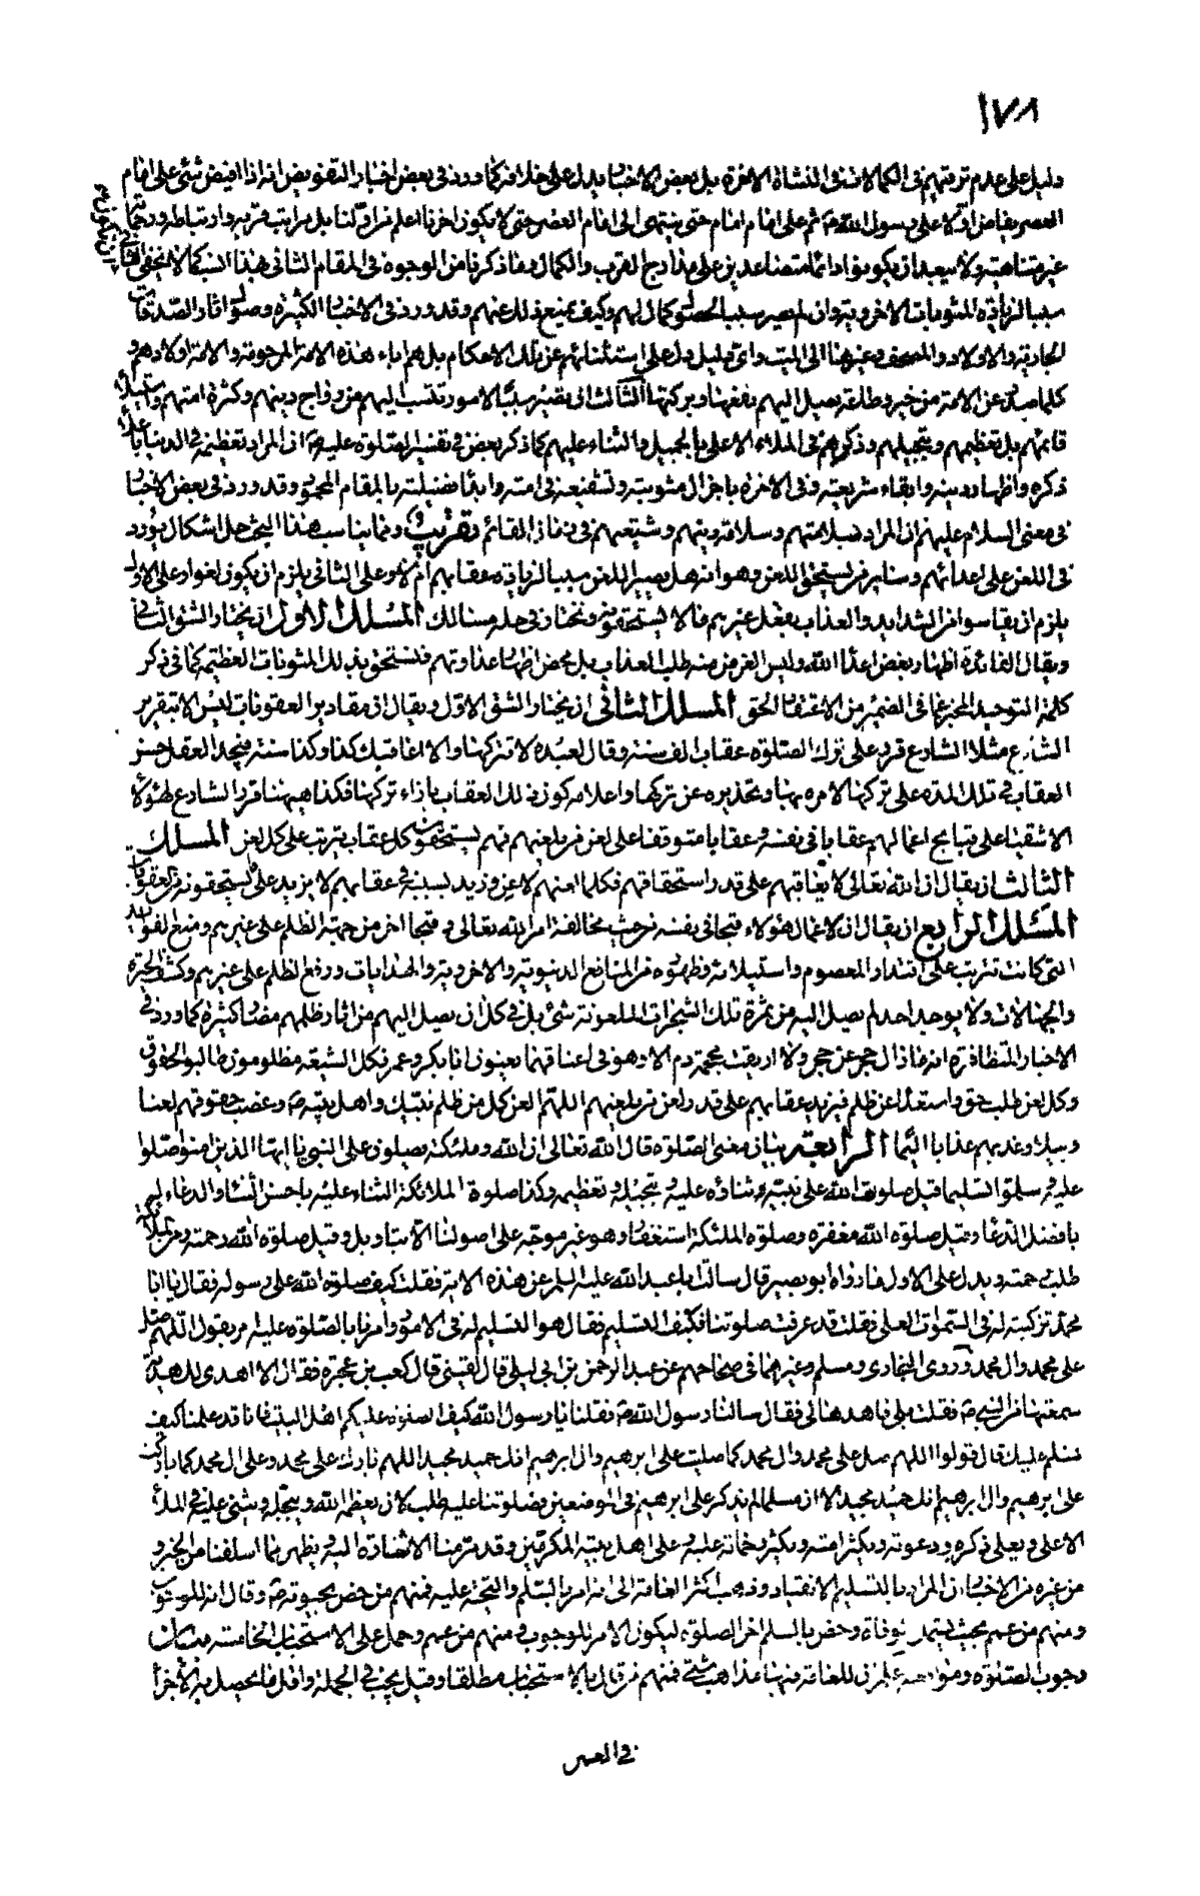 ١٧٨
دليل على عدم ترقيهم في الكمالات في النشأة الاخرة بل بعض الاخبار يدل على خلافه كما ورد في بعض اخبار التفويض انه اذا افيض شئ على امام
العصر يفاض اولا على رسول الله ص ثم على امام امام حتى ينتهي الى امام العصر حتى لا يكون اخرنا اعلم من اولنا بل مراتب قربه وارتباطه ورحماته
غير متناهية ولا يبعد ان يكونوا دائما متصاعدين على مدارج القرب والكمال وما ذكرنا من الوجوه في المقام الثاني هذا
سببا لزيادة المثوبات الاخروية وان لم يصر سببا لحصول كمال لهم وكيف يمنع ذلك عنهم وقد ورد في الاخبار الكثيرة وصول اثار الصدقات
الجارية والاولاد والمصحف وغيرها الى الميت واى دليل دل على استثنائهم عن تلك الاحكام بل هم اباء هذه الامة المرحومة والائمة اولادهم و
كلما صدر عن الامة من خير وطاعة يصل اليهم نفعها وبركتها الثالث ان تصير سببا لامور تنتسب اليهم من رواج دينهم وكثرة امتهم واستيلاء
قائمهم بل تعظيمهم وتبجيلهم وذكرهم في الملاء الاعلى بالجميل والثناء عليهم كما ذكر بعض في تفسير الصلوة عليه ص ان المراد تعظيمه في الدنيا باعلاء
ذكره واظهار دينه وابقاء شريعته وفي الاخرة باجزال مثوبته وتشفيعه في امته وابداء فضيلته بالمقام المحمود وقد ورد في بعض الاخبار
في معنى السلام عليهم ان المراد سلامتهم وسلامة دينهم وشيعتهم في زمان القائم ومما يناسب هذا البحث حل اشكال يورد
في اللعن على اعدائهم وساير من يستحق اللعن وهو انه هل يصير اللعن سببا لزيادة عقابهم ام لا وعلى الثاني يلزم ان يكون لغوا وعلى الاول
يلزم ان يقاسوا من الشدايد والعذاب بفعل غيرهم ما لا يستحقونه ونختار في حله مسالك المسلك الاول ان يختار الشق الثاني
ويقال الفائدة اظهار بغض اعداء الله وليس الغرض منه طلب العذاب بل محض اظهار عداوتهم فنستحق بذلك المثوبات العظيمة كما في ذكر
كلمة التوحيد المخبر عما في الضمير من الاعتقاد الحق المسلك الثاني ان يختار الشق الاول ويقال ان مقادير العقوبات ليس الا بتقرير
الشارع مثلا الشارع قرر على ترك الصلوة عقاب الف سنة وقال لعبده لا تتركها والا اعاقبك كذا وكذا سنة فيجد العقل حسن
العقاب في تلك المدة على تركها لامره بها وتحذيره عن تركها واعلامه كون ذلك العقاب بازاء تركها فكذا هيهنا قرر الشارع لهؤلاء
الاشقياء على قبايح اعمالهم عقابا في نفسه وعقابا متوقفا على لعن من يلعنهم فهم يستحقون كل عقاب يترتب على كل لعن المسلك
الثالث ان يقال ان الله تعالى لا يعاقبهم على قدر استحقاقهم فكلما لعنهم لاعن وزيد لسببه في عقابهم لا يزيد على ما يستحقونه من العقوبات
المسلك الرابع ان يقال ان لاعمال هؤلاء قبحا في نفسه من حيث مخالفة امر الله تعالى وقبحا اخر من جهة الظلم على غيرهم ومنع الفوايد
التي كانت تترتب على اقتدار المعصوم واستيلائه وظهوره من المنافع الدنيوية والاخروية والهدايات ورفع الظلم على غيرهم وكشف الحيرة
والجهالات ولا يوجد احد لم يصل اليه من ثمرة تلك الشجرات الملعونة شئ بل في كل ان يصل اليهم من اثار ظلمهم مضار كثيرة كما ورد في
الاخبار المتظافرة انه ما زال حجر عن حجر ولا اريقت محجمة دم الا وهو في اعناقهما يعنون ابا بكر وعمر فكل الشيعة مظلومون طالبوا الحقوق
وكل لعن طلب حق واستعداء عن ظلم فيزيد عقابهم على قدر لعن من يلعنهم اللهم العن كل من ظلم نبيك واهل بيته ص وغصب حقوقهم لعنا
وبيلا وعذبهم عذابا اليما الرابعة بيان معنى الصلوة قال الله تعالى ان الله وملئكته يصلون على النبي يا ايها الذين امنوا صلوا
عليه وسلموا تسليما قيل صلوة الله على نبيه ثناؤه عليه وتبجيله وتعظيمه وكذا صلوة الملائكة الثناء عليه باحسن الثناء والدعاء له
بافضل الدعاء وقيل صلوة الله مغفرة وصلوة الملئكة استغفار وهو غير موجه على اصولنا الا بتاويل وقيل صلوة الله رحمة ومن
طلب رحمة ويدل على الاول ما رواه ابو بصير قال سالت ابا عبد الله عليه السلم عن هذه الاية فقلت كيف صلوة الله على رسوله فقال يا ابا
محمد تزكيته له في السموات العلى فقلت قد عرفت صلوتنا فكيف التسليم فقال هو التسليم له في الامور وامرنا بالصلوة عليه من يقول اللهم صل
على محمد وال محمد وروى البخارى ومسلم وغيرهما في صحاحهم عن عبد الرحمن بن ابى ليلى قال لقيني كعب بن عجرة فقال الا اهدى لك هدية
سمعتها من النبي ص فقلت بلى فاهدها لي فقال سالنا رسول الله ص فقلنا يا رسول الله كيف الصلوة عليكم اهل البيت فانا قد علمنا كيف
نسلم عليك قال قولوا اللهم صل على محمد وال محمد كما صليت على ابرهيم وال ابرهيم انك حميد مجيد اللهم بارك على محمد وعلى ال محمد كما باركت
على ابرهيم وال ابرهيم انك حميد مجيد الا ان مسلما لم يذكر على ابرهيم في الموضعين فصلوتنا عليه طلب لان يعظمه الله ويبجله ويثني عليه في الملاء
الاعلى ويعلى ذكره ودعوته ويكثر امته ويكثر رحماته عليه وعلى اهل بيته المكرمين وقد مر منا الاشارة اليه ويظهر مما اسلفنا من الخبر و
من غيره من الاخبار ان المراد بالتسليم الانقياد وذهب اكثر العامة الى انه امر بالسلم والتحية عليه فمنهم من خص بحيوته ص وقال انه للوجوب
ومنهم من عمم بحيث يشمل وفاته وخص بالسلم اخر الصلوة ليكون الامر للوجوب ومنهم من عمم وحمل على الاستحباب الخامسة بيان
وجوب الصلوة للعامة فيها مذاهب شتى فمنهم من قال بالاستحباب مطلقا وقيل يجب في الجملة واقل ما يحصل به الاجزاء
في العمر